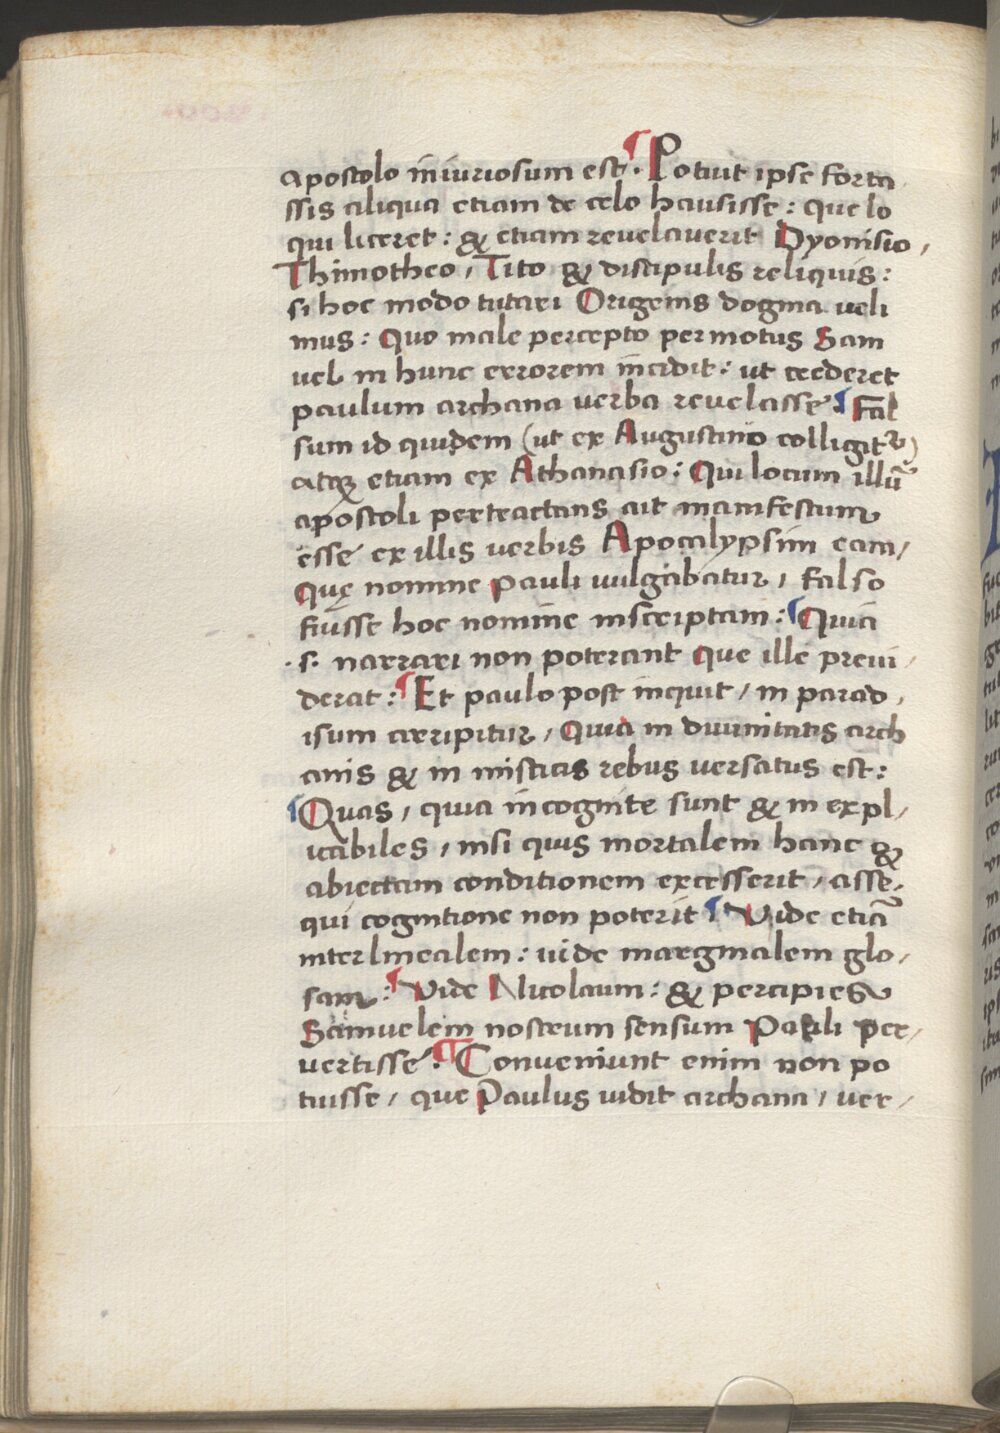 apostolo iniuriosum est. ¶ Potuit ipse forta
ssis aliqua etiam de celo hausisse: que lo
qui liceret: & etiam revelaverit Dyonisio,
Thimotheo, Tito & discipulis reliquis:
si hoc modo tutari Origenis dogma veli
mus: Quo male percepto permotus Sam
uel in hunc errorem incidit: ut crederet
paulum archana verba revelasse. ¶ Fal
sum id quidem (ut ex Augustino colligitr)
atqz etiam ex Athanasio: Qui locum illū
apostoli pertractans ait manifestum
esse ex illis verbis Apocalypsim eam/
Quę nomine Pauli vulgabatur, falso
fuisse hoc nomine inscriptam: ¶ Quia
.s. narrari non poterant Que ille previ/
derat: ¶ Et paulo post inquit / in parad,
isum arripitur, Quia in divinitatis arch
anis & in misticis rebus versatus est:
¶ Quas, quia incognite sunt & inexpl/
icabiles, nisi quis mortalem hanc &
abiectam conditionem excesserit, asse,
qui cognitione non poterit ¶ Vide etiā
interlinealem: vide marginalem glo,
sam: ¶ Vide Nicolaum: & percipies
Samuelem nostrum sensum Pauli per,
vertisse. ¶ Conveniunt enim non po
tuisse, que Paulus vidit archana, ver,